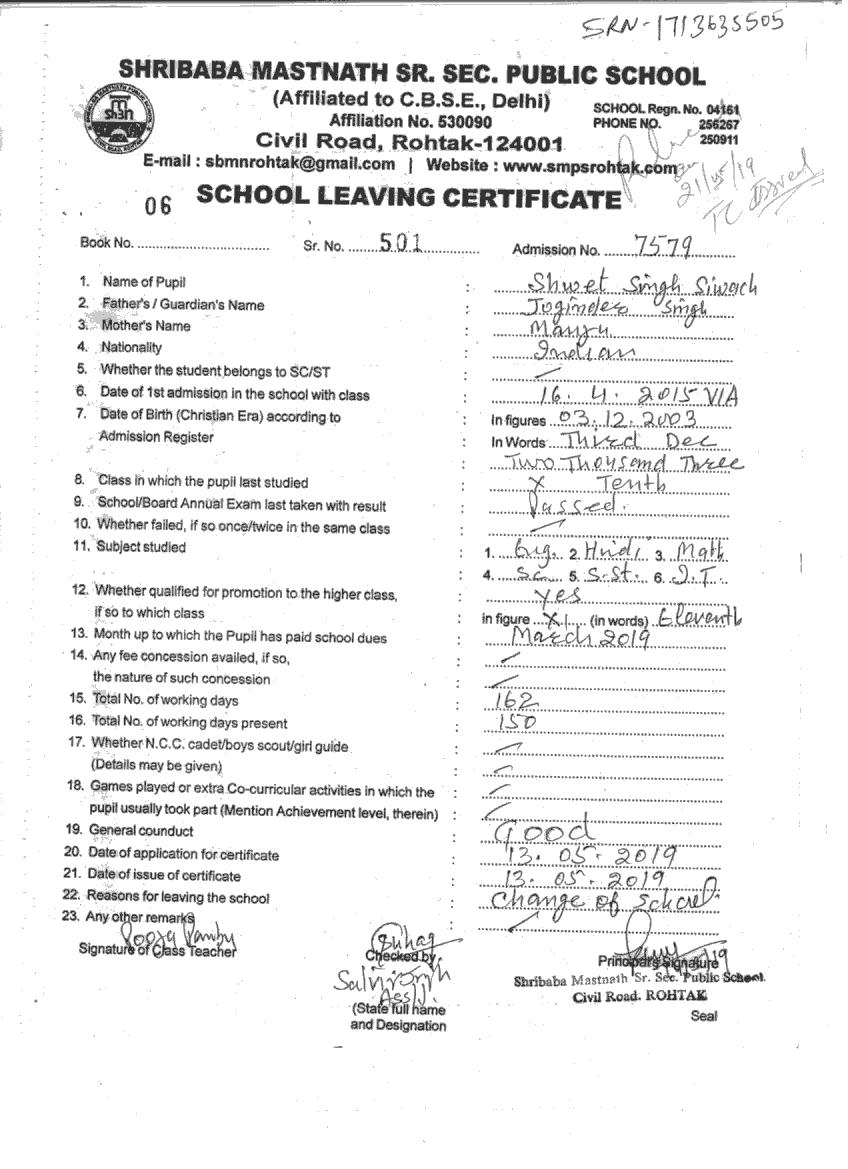 SRN-1713635505
SHRIBABA MASTNATH SR. SEC. PUBLIC SCHOOL
(Affiliated to C.B.S.E., Delhi)
Affiliation No. 530090
SCHOOL Regn. No. 04161
PHONE NO. 256267
250911
Civil Road, Rohtak-124001
E-mail : sbmnrohtak@gmail.com | Website : www.smpsrohtak.com
21/05/19
TC Issued
SCHOOL LEAVING CERTIFICATE
06
Book No. .................... Sr. No. 501 Admission No. 7579
1. Name of Pupil : Shwet Singh Siwach
2. Father's / Guardian's Name : Joginder Singh
3. Mother's Name : Manju
4. Nationality : Indian
5. Whether the student belongs to SC/ST :
6. Date of 1st admission in the school with class : 16. 4. 2015 VIA
7. Date of Birth (Christian Era) according to : In figures 03.12.2003
Admission Register In Words Third Dec
Two Thousand Three
8. Class in which the pupil last studied : X Tenth
9. School/Board Annual Exam last taken with result : Passed.
10. Whether failed, if so once/twice in the same class :
11. Subject studied : 1. Eng. 2. Hindi 3. Math
4. Sc. 5. S.St. 6. I.T.
12. Whether qualified for promotion to the higher class, : Yes
if so to which class In figure XI (in words) Eleventh
13. Month up to which the Pupil has paid school dues : March 2019
14. Any fee concession availed, if so, :
the nature of such concession :
15. Total No. of working days : 162
16. Total No. of working days present : 150
17. Whether N.C.C. cadet/boys scout/girl guide :
(Details may be given) :
18. Games played or extra Co-curricular activities in which the :
pupil usually took part (Mention Achievement level, therein) :
19. General counduct : Good
20. Date of application for certificate : 13. 05. 2019
21. Date of issue of certificate : 13. 05. 2019
22. Reasons for leaving the school : Change of School.
23. Any other remarks :
Signature of Class Teacher
Checked by
Principal's Signature
Shribaba Mastnath Sr. Sec. Public School.
Civil Road. ROHTAK
(State full name
and Designation
Seal